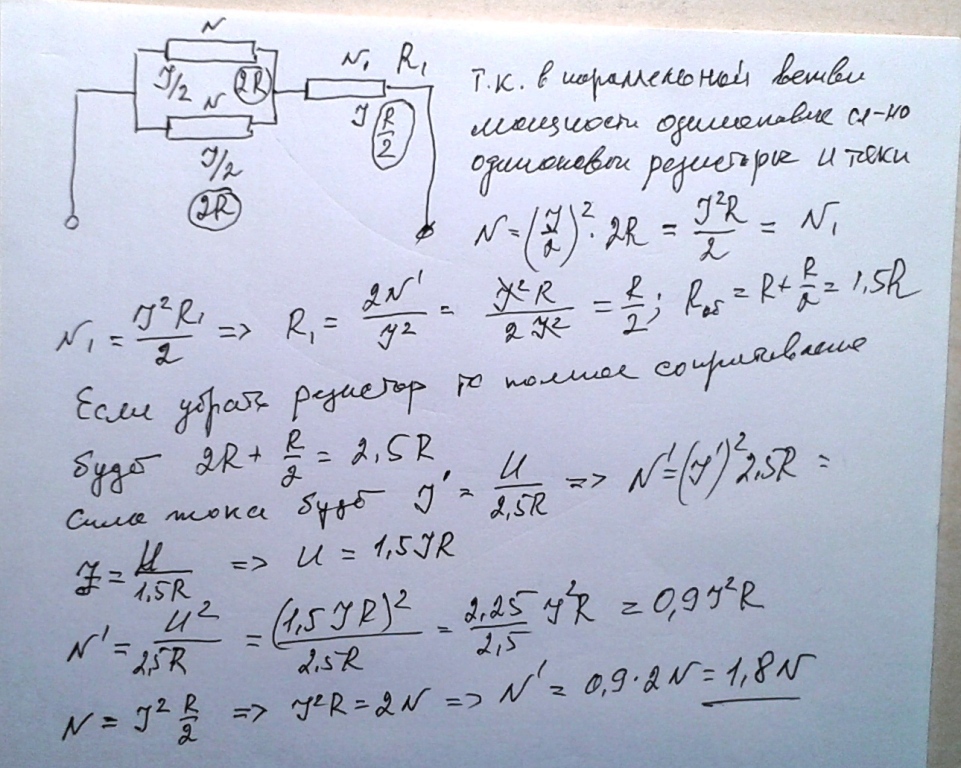 N
J/2 2R
N
J/2
2R
N₁ R₁
J R/2
Т.к. в параллельной ветви
мощности одинаковые сл-но
одинаковы резисторы и токи
N = (J/2)² · 2R = J²R/2 = N₁
N₁ = J²R₁/2 => R₁ = 2N'/J² = J²R/2J² = R/2; Rоб = R + R/2 = 1,5R
Если убрать резистор то полное сопротивление
будет 2R + R/2 = 2,5R
Сила тока будет J' = U/2,5R => N' = (J')² 2,5R =
J = U/1,5R => U = 1,5JR
N' = U²/2,5R = (1,5JR)²/2,5R = 2,25/2,5 J²R = 0,9J²R
N = J² R/2 => J²R = 2N => N' = 0,9·2N = 1,8N